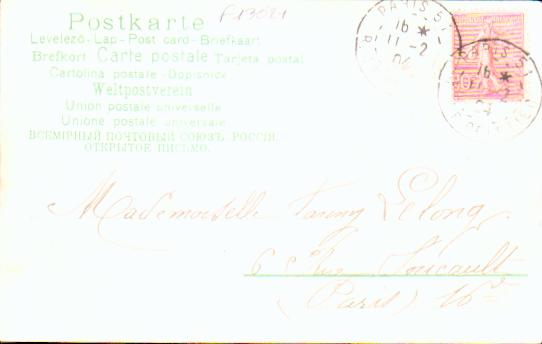 Postkarte F13021
Levelező-Lap-Post card-Briefkaart
Brefkort Carte postale Tarjeta postal
Cartolina postale-Dopisnice
Weltpostverein
Union postale universelle
Unione postale universale
ВСЕМІРНЫЙ ПОЧТОВЫЙ СОЮЗЪ. РОССІЯ.
ОТКРЫТОЕ ПИСЬМО.
PARIS 51
16 *
11 -2
04
PARIS 51
16 *
04
Mademoiselle Fanny Lelong
6 Rue Foucault
(Paris) 16e